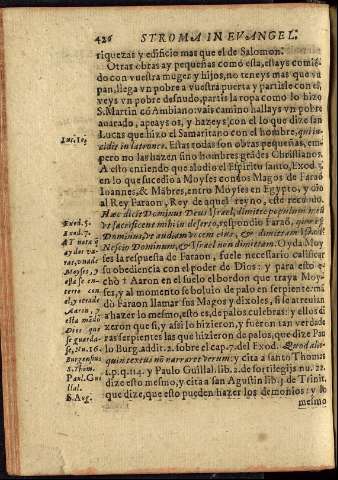 426 STROMA IN EVANGEL.
riquezas y edificio mas que el de Salomon.
Otras obras ay pequeñas como esta, estays comiẽ
do con vuestra muger y hijos, no teneys mas que vn
pan, llega vn pobre a vuestra puerta y partisle con el,
veys vn pobre desnudo, partis la ropa como lo hizo
S. Martin cõ Ambiano: vais camino hallays vn pobre
apeaysos, y hazeys, con el lo que dize san
Luc. 10.
Lucas que hizo el Samaritano con el hombre, qui in-
cidit in latrones. Estas todas son obras pequeñas, em-
pero no las hazen sino hombres grãdes Christianos.
A esto entiendo que aludio el Espiritu santo, Exod. 7.
en lo que sucedio a Moyses con los Magos de Faraõ
Ioannes, & Mãbres, entro Moyses en Egypto, y dio
al Rey Faraon, Rey de aquel reyno, este recaudo.
Hæc dicit Dominus Deus Israel, dimitte populum meũ
Exod. 5.
vt sacrificent mihi in deserto, respondio Faraõ, quis est
Exod. 7.
Dominus, vt audiam vocem eius, & dimittam Israel?
Nescio Dominum, & Israel non dimittam. Oyda Moy
ses la respuesta de Faraon, fuele necessario calificar
su obediencia con el poder de Dios: y para esto e-
chò Aaron en el suelo el bordon que traya Moy-
ses, y al momento se boluio de palo en serpiente: mã
dò Faraon llamar sus Magos y dixoles, si se atreuian
a hazer lo mesmo, esto es, de palos culebras: y ellos di
xeron que si, y assi lo hizieron, y fueron tan verdade
ras serpientes las que hizieron de palos, que dize Pau
lo Burg. addit. 2. sobre el cap. 7. del Exod. Quod ali-
Burgensius
quin textus nõ narraret verum: y cita a santo Thomas
S. Thom.
1. p. q. 114. y Paulo Guillal. lib. 2. de sortilegijs nu. 22.
Paul. Gui
llal.
dize esto mesmo, y cita a san Agustin lib. 3 de Trinit.
S. Aug.
que dize, que esto pueden hazer los demonios: y lo
mesmo